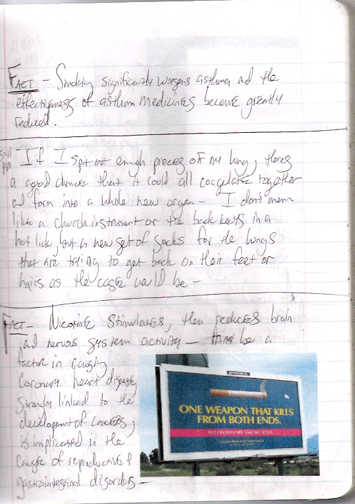 FACT - Smoking significantly worsens asthma and the
effectiveness of asthma medicines become greatly
reduced.
- If I spit out enough pieces of my lung, theres
a good chance that it could all coagulate together
and form into a whole new organ - I don't mean
like a church instrument or the back keys in a
hot lick, but a new set of sacks for the lungs
that are trying to get back on their feet or
hairs as the case would be -
FACT - Nicotine stimulates, then reduces brain
and nervous system activity - be a
factor in causing
coronary heart disease,
strongly linked to the
development of cancers,
is implicated in the
cause of reproductive &
gastrointestinal disorders -
ONE WEAPON THAT KILLS
FROM BOTH ENDS.
SECONDHAND SMOKE KILLS